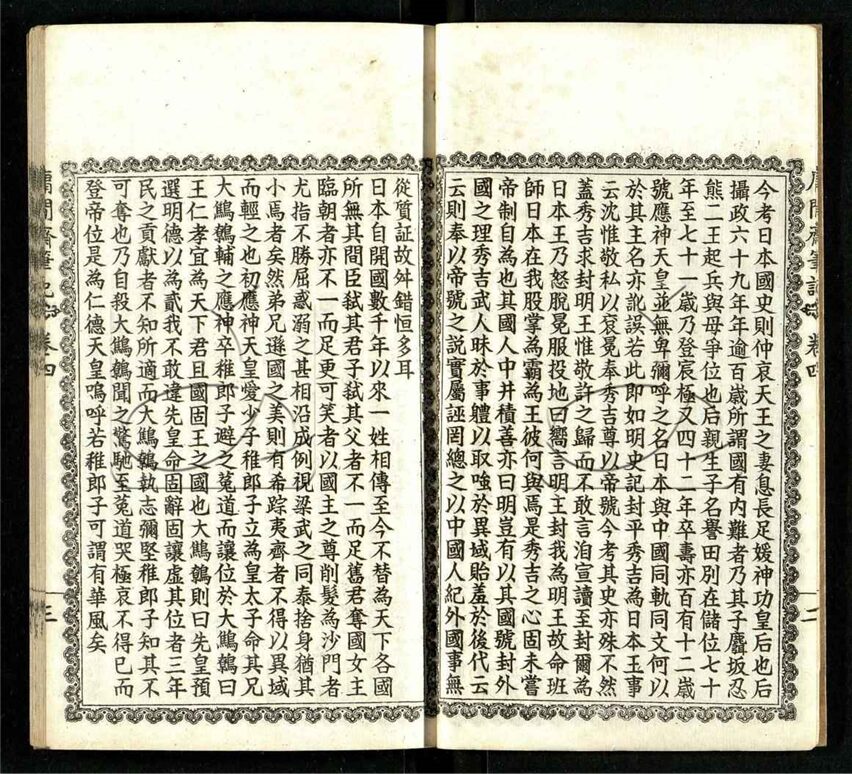 今考日本國史則仲哀天王之妻息長足媛神功皇后也后
攝政六十九年年逾百歲所謂國有內難者乃其子麛坂忍
熊二王起兵與母爭位也后親生子名譽田別在儲位七十
年至七十一歲乃登宸極又四十二年卒壽亦百有十二歲
號應神天皇並無卑彌呼之名日本與中國同軌同文何以
於其主名亦訛誤若此即如明史記封平秀吉為日本王事
云沈惟敬私以袞冕奉秀吉尊以帝號今考其史亦殊不然
蓋秀吉求封明王惟敬許之歸而不敢言洎宣讀至封爾為
日本王乃怒脫冕服投地曰嚮言明主封我為明王故命班
師日本在我股掌為霸為王彼何與焉是秀吉之心固未嘗
帝制自為也其國人中井積善亦曰明豈有以其國號封外
國之理秀吉武人昧於事體以取嗤於異域貽羞於後代云
云則奉以帝號之說實屬誣罔總之以中國人紀外國事無
庸閒齋筆記 卷四
二
從質証故舛錯恒多耳
日本自開國數千年以來一姓相傳至今不替為天下各國
所無其間臣弒其君子弒其父者不一而足舊君奪國女主
臨朝者亦不一而足更可笑者以國主之尊削髮為沙門者
尤指不勝屈惑溺之甚相沿成例視梁武之同泰捨身猶其
小焉者矣然弟兄遜國之美則有希踪夷齊者不得以異域
而輕之也初應神天皇愛少子稚郎子立為皇太子命其兄
大鷦鷯輔之應神卒稚郎子避之菟道而讓位於大鷦鷯曰
王仁孝宜為天下君且國固王之國也大鷦鷯則曰先皇預
選明德以為貳我不敢違先皇命固辭固讓虛其位者三年
民之貢獻者不知所適而大鷦鷯執志彌堅稚郎子知其不
可奪也乃自殺大鷦鷯聞之驚馳至菟道哭極哀不得已而
登帝位是為仁德天皇嗚呼若稚郎子可謂有華風矣
庸閒齋筆記 卷四
三